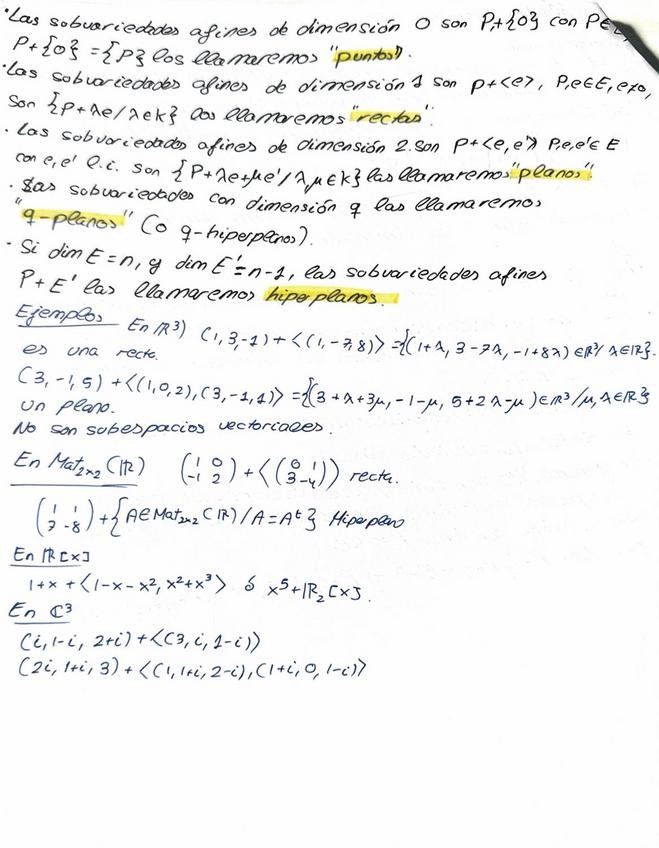 · Las subvariedades afines de dimensión 0 son P+{0} con P∈
P+{0} = {P} los llamaremos "puntos".
· Las subvariedades afines de dimensión 1 son p+<e>, P,e∈E, e≠0,
son {P+λe/λ∈k} las llamaremos "rectas".
· Las subvariedades afines de dimensión 2 son P+<e,e'> P,e,e'∈E
con e,e' l.i. son {P+λe+μe'/λ,μ∈k} las llamaremos "planos".
· Las subvariedades con dimensión q las llamaremos
"q-planos" (o q-hiperplanos).
· Si dim E=n, y dim E'=n-1, las subvariedades afines
P+E' las llamaremos hiperplanos.
Ejemplos En ℝ³) (1,3,-1)+<(1,-7,8)> ={(1+λ, 3-7λ, -1+8λ)∈ℝ³/λ∈ℝ}.
es una recta.
(3,-1,5)+<(1,0,2),(3,-1,1)> ={(3+λ+3μ, -1-μ, 5+2λ-μ)∈ℝ³/μ,λ∈ℝ}
un plano.
No son subespacios vectoriales.
En Mat₂ₓ₂(ℝ) (1 0 / -1 2) + <(0 1 / 3 -4)> recta.
(1 1 / 7 -8) + {A∈Mat₂ₓ₂(ℝ)/A=Aᵗ} Hiperplano
En ℝ[x]
1+x+<1-x-x², x²+x³> ó x⁵+ℝ₂[x].
En ℂ³
(i,1-i,2+i)+<(3,i,1-i)>
(2i,1+i,3)+<(1,1+i,2-i),(1+i,0,1-i)>